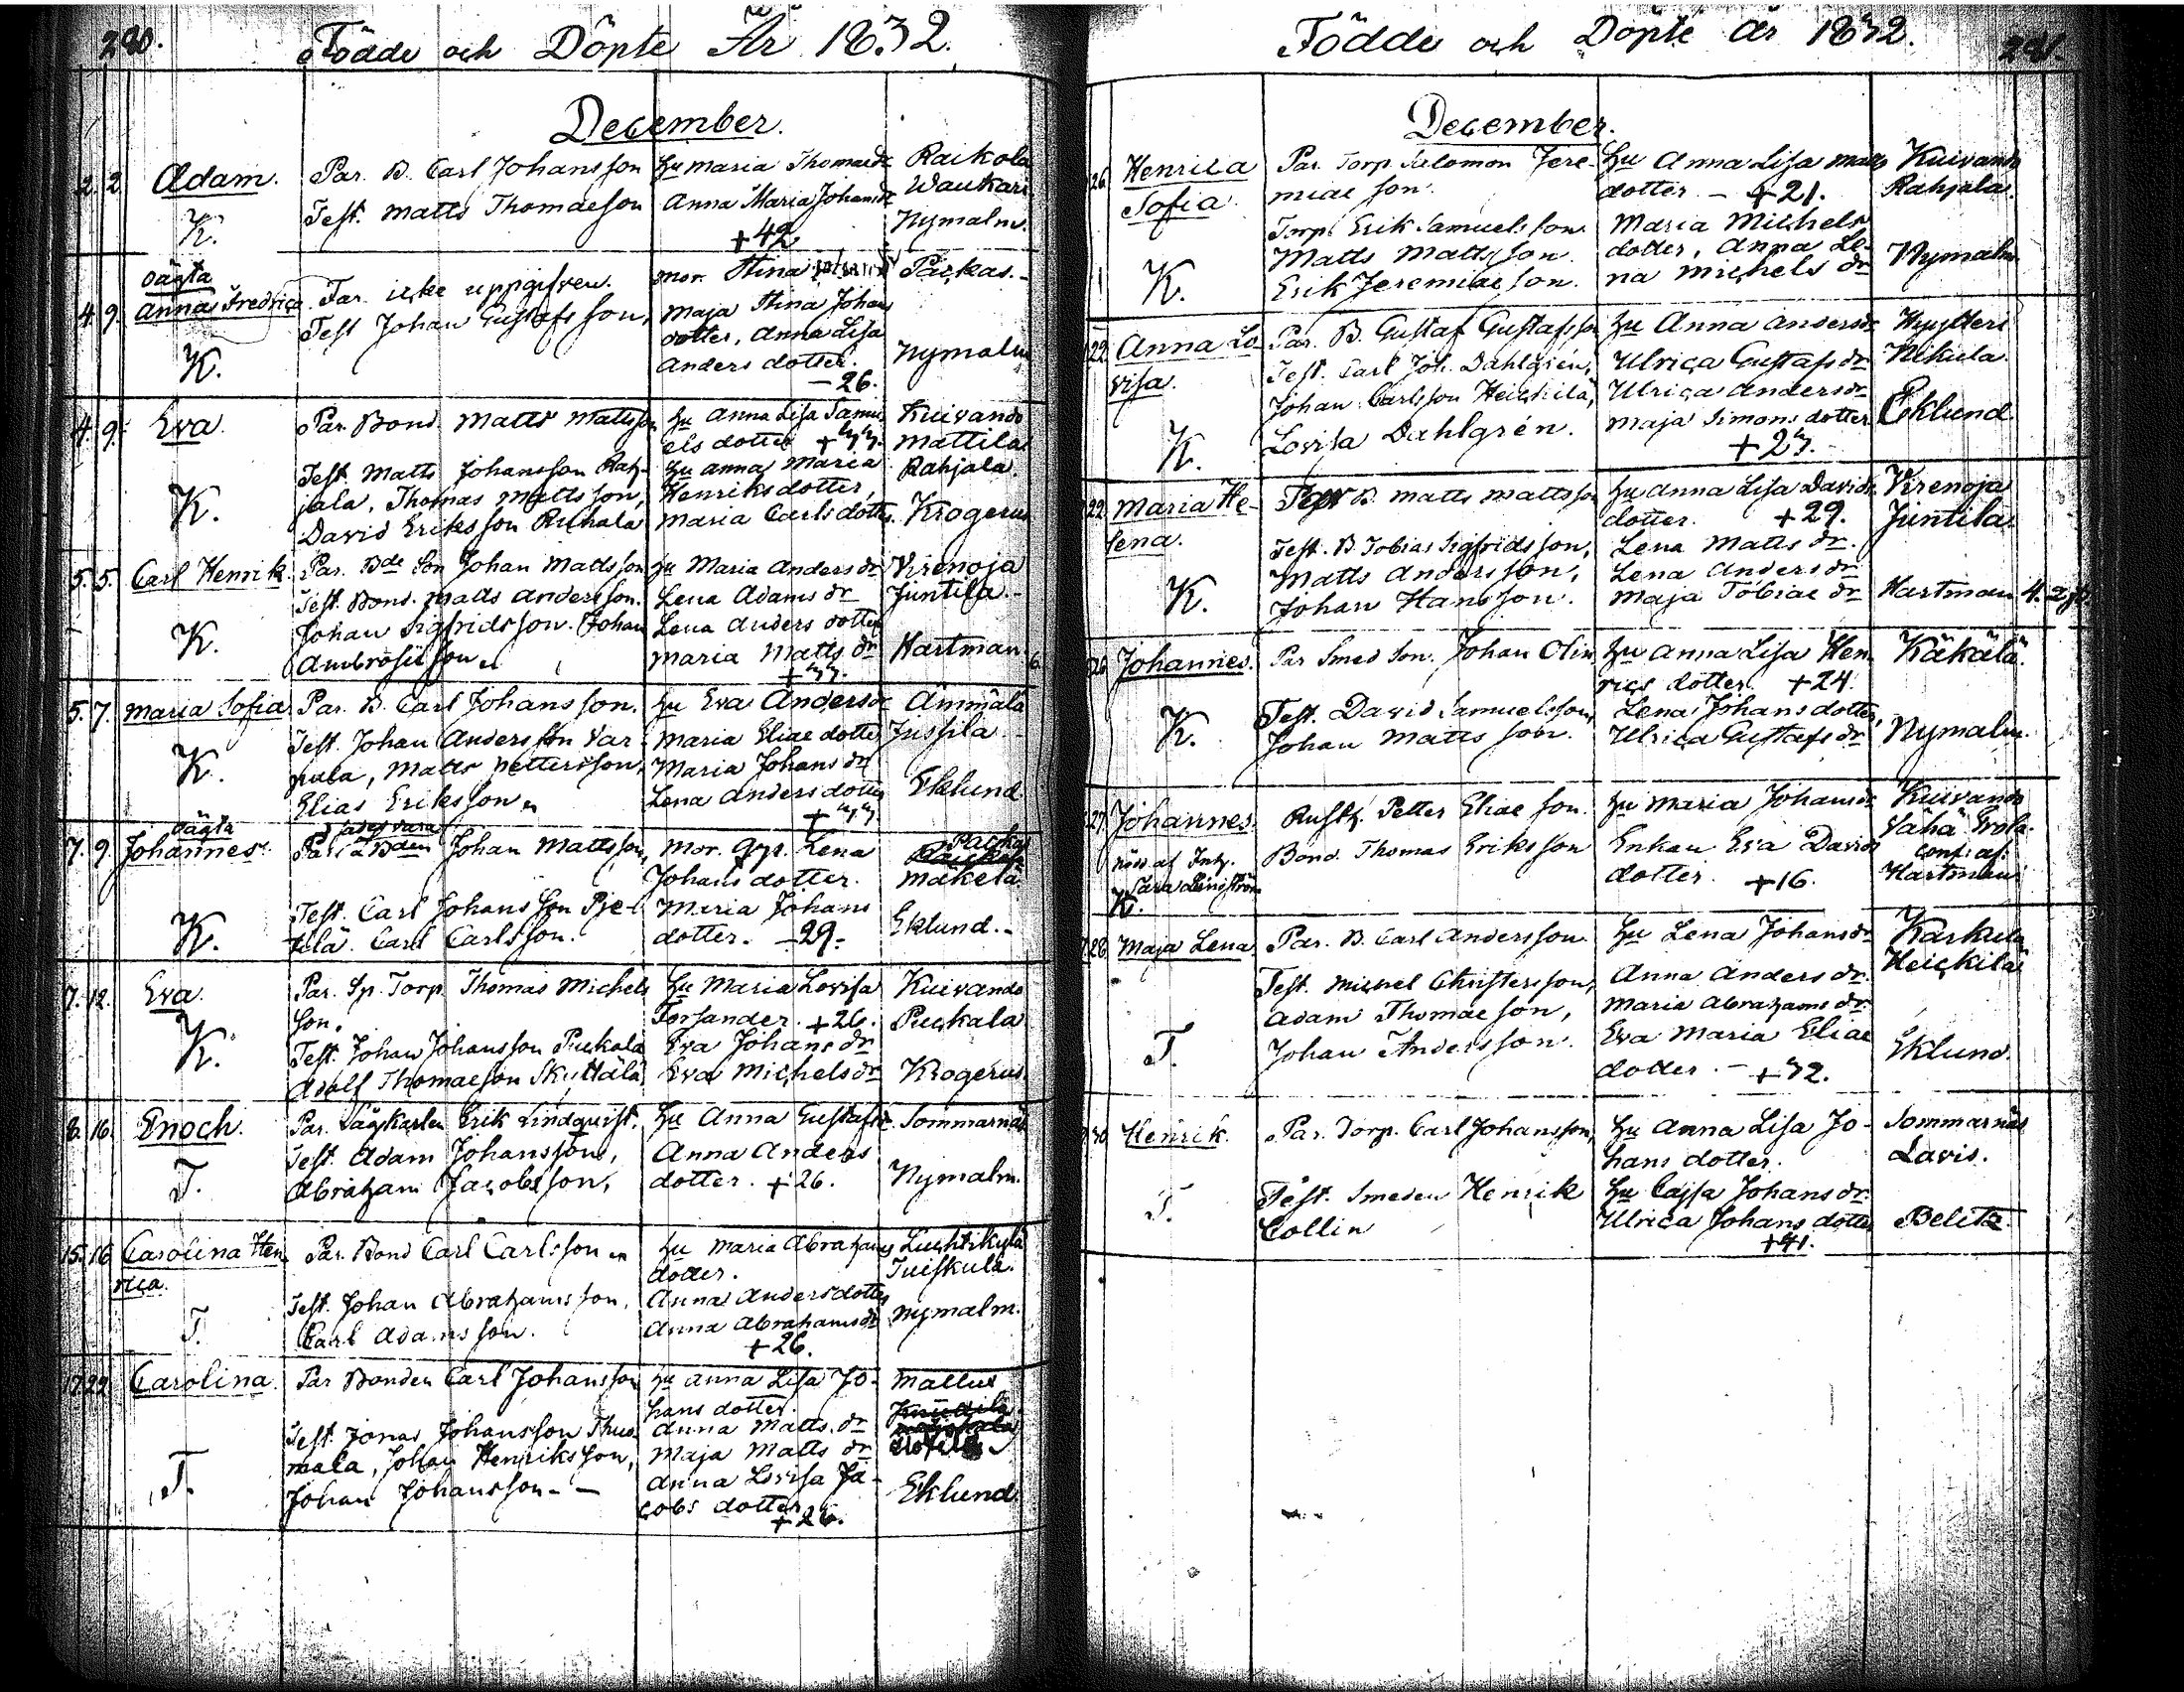 290.
Födde och Döpte År 1832.
December.
2. 2. Adam. Par. B. Carl Johansson Hu Maria Thomædr Raikola
K. Test. Matts Thomæson Anna Maria Johansdr Waukari
+42 Nymalm.
oägta
4. 9. Anna Fredrica Far icke uppgifven. mor. Stina Päckas.-
Test Johan Gustafsson, Maja Stina Johans
dotter, Anna Lisa
K. Anders dotter. Nymalm
- 26.
4. 9. Eva Par. Bond. Matts Mattsson Hu Anna Lisa Samu- Kuivando
els dotter +33. Mattila
Test. Matts Johansson Rah- Hu Anna Maria Rahjala.
K. jala, Thomas Mattsson, Henriksdotter,
David Eriksson Ruhala Maria Carlsdotter. Krogerus
5. 5. Carl Henrik. Par. Bde Son Johan Madsson Hu Maria Anders dr Virenoja
Test. Bond. Matts Andersson. Lena Adams dr Juntila.-
K. Johan Sigfridsson. Johan Lena Anders dotter
Ambrosiison Maria Matts dr Hartman. 6.
+33.
5. 7. Maria Sofia Par. B. Carl Johansson. Hu Eva Andersdr Ammälä
Test. Johan Andersson Var- Maria Eliæ dotter Jussila
K. pula, Matts Pettersson, Maria Johans dr
Elias Eriksson Lena Anders dotter Eklund
+33
oägta säges vara
7. 9. Johannes. Par. a Bden Johan Mattsson, Mor. Lena Päckas
Johans dotter. Mäkelä
Test. Carl Johansson Pie- Maria Johans
K. tilä. Carl Carlsson. dotter. -29.- Eklund.-
7. 12. Eva. Par. Sp. Torp. Thomas Michels Hu Maria Lovisa Kuivando
son. Forsander. +26. Puckala
K. Test. Johan Johansson Puckala Eva Johans dr
Adolf Thomæson Skyttälä Eva Michelsdr Krogerus.
8. 16. Enoch. Par. Sågkarlen Erik Lindqvist. Hu Anna Gustafsdr. Sommarnäs
Test. Adam Johansson, Anna Anders
T. Abraham Jacobsson, dotter. +26. Nymalm.
15. 16 Carolina Hen Par. Bond Carl Carlsson Hu Maria Abrahams Luchtikylä
rica. dotter. Tuiskula.
Test. Johan Abrahamsson, Anna Andersdotter
T. Carl Adamsson. Anna Abrahamsdr Nymalm.
+26.
17. 22. Carolina. Par Bonden Carl Johansson Hu Anna Lisa Jo- Mallus
hans dotter.
Test. Jonas Johansson Thuo- Anna Matts dr
mala, Johan Henriksson, Maja Matts dr
T. Johan Johansson - - Anna Lovisa Ja-
cobs dotter Eklund
+26.
Födde och Döpte År 1832.
291.
December.
26. Henrica Par. Torp. Salomon Jere- Hu Anna Lisa Matts Kuivando
Sofia. miæ son. dotter. - +21. Rahjala.
Torp. Erik Samuelsson. Maria Michels
Matts Mattsson. dotter, Anna Le-
K. Erik Jeremiæson. na Michels dr Nymalm
22. Anna Lo- Par. B. Gustaf Gustafsson Hu Anna Andersdr
visa. Test. Carl Joh. Dahlgrén, Ulrica Gustafsdr Nikula.
Johan Carlsson Heickilä, Ulrica Andersdr
K. Lovisa Dahlgrén. Maja Simons dotter Eklund
+23.
22. Maria He- Par B. Matts Mattsson Hu Anna Lisa Davids Virenoja
lena. dotter. +29. Juntila.
Test. B. Tobias Sigfridsson, Lena Matts dr.
K. Matts Andersson, Lena Anders dr
Johan Hansson. Maja Tobiæ dr Hartman 4.
26. Johannes. Par Smed Son. Johan Olin Hu Anna Lisa Hen- Käkälä.
rics dotter. +24.
K. Test. David Samuelsson, Lena Johans dotter,
Johan Mattsson. Ulrica Gustafs dr Nymalm.
27. Johannes. Rusth. Petter Eliæ son. Hu Maria Johansdr Kuivando
nöd. af Inh. Bond. Thomas Eriksson Enkan Eva Davids Vähä
Sara Lindström dotter. +16. conf. af.
K. Hartman
28. Maja Lena Par. B. Carl Andersson. Hu Lena Johansdr Karkula
Test. Michel Christersson, Anna Anders dr. Heickilä
Adam Thomæson, Maria Abrahams dr.
T. Johan Andersson. Eva Maria Eliæ
dotter. - +32. Eklund.
30. Henrik. Par. Torp. Carl Johansson, Hu Anna Lisa Jo- Sommarnäs
hans dotter. Lavis.
T. Test. Smeden Henrik Hu Cajsa Johansdr.
Collin Ulrica Johans dotter Belitz
+41.